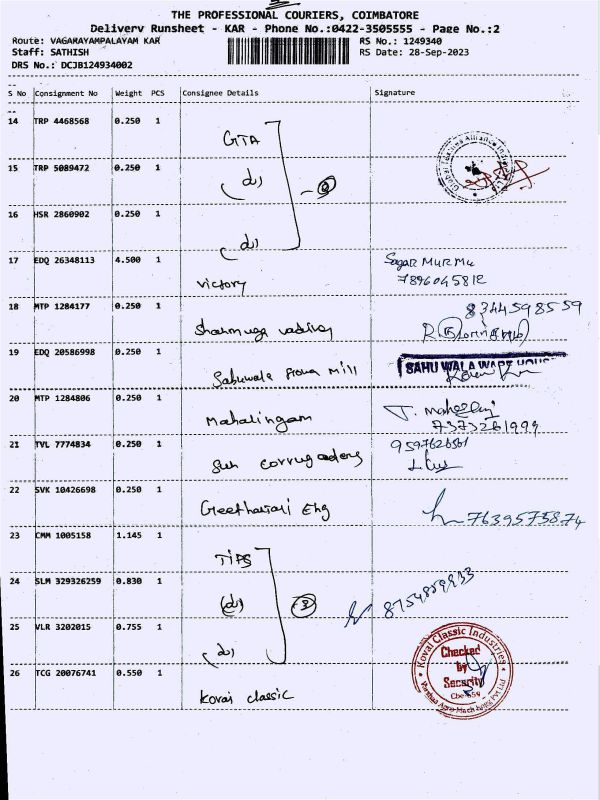 THE PROFESSIONAL COURIERS, COIMBATORE
Delivery Runsheet - KAR - Phone No.:0422-3505555 - Page No.:2
Route: VAGARAYAMPALAYAM KAR
RS No.: 1249340
Staff: SATHISH
RS Date: 28-Sep-2023
DRS No.: DCJB124934002
S No Consignment No Weight PCS Consignee Details Signature
14 TRP 4468568 0.250 1 GTA
15 TRP 5089472 0.250 1 (do)
16 HSR 2860902 0.250 1 (do)
17 EDQ 26348113 4.500 1 Victory Sagar Murmu
7896045812
18 MTP 1284177 0.250 1 8344598559
19 EDQ 20586998 0.250 1 Sahuwala Flour Mill SAHU WALA
20 MTP 1284806 0.250 1 Mahalingam 7373261999
21 TVL 7774834 0.250 1 Sun
22 SVK 10426698 0.250 1 Eng 7639573874
23 CMM 1005158 1.145 1 TIPS
24 SLM 329326259 0.830 1 (do) 3
25 VLR 3202015 0.755 1 (do)
26 TCG 20076741 0.550 1 Kovai classic
Kovai Classic Industries
Checked
by
Security